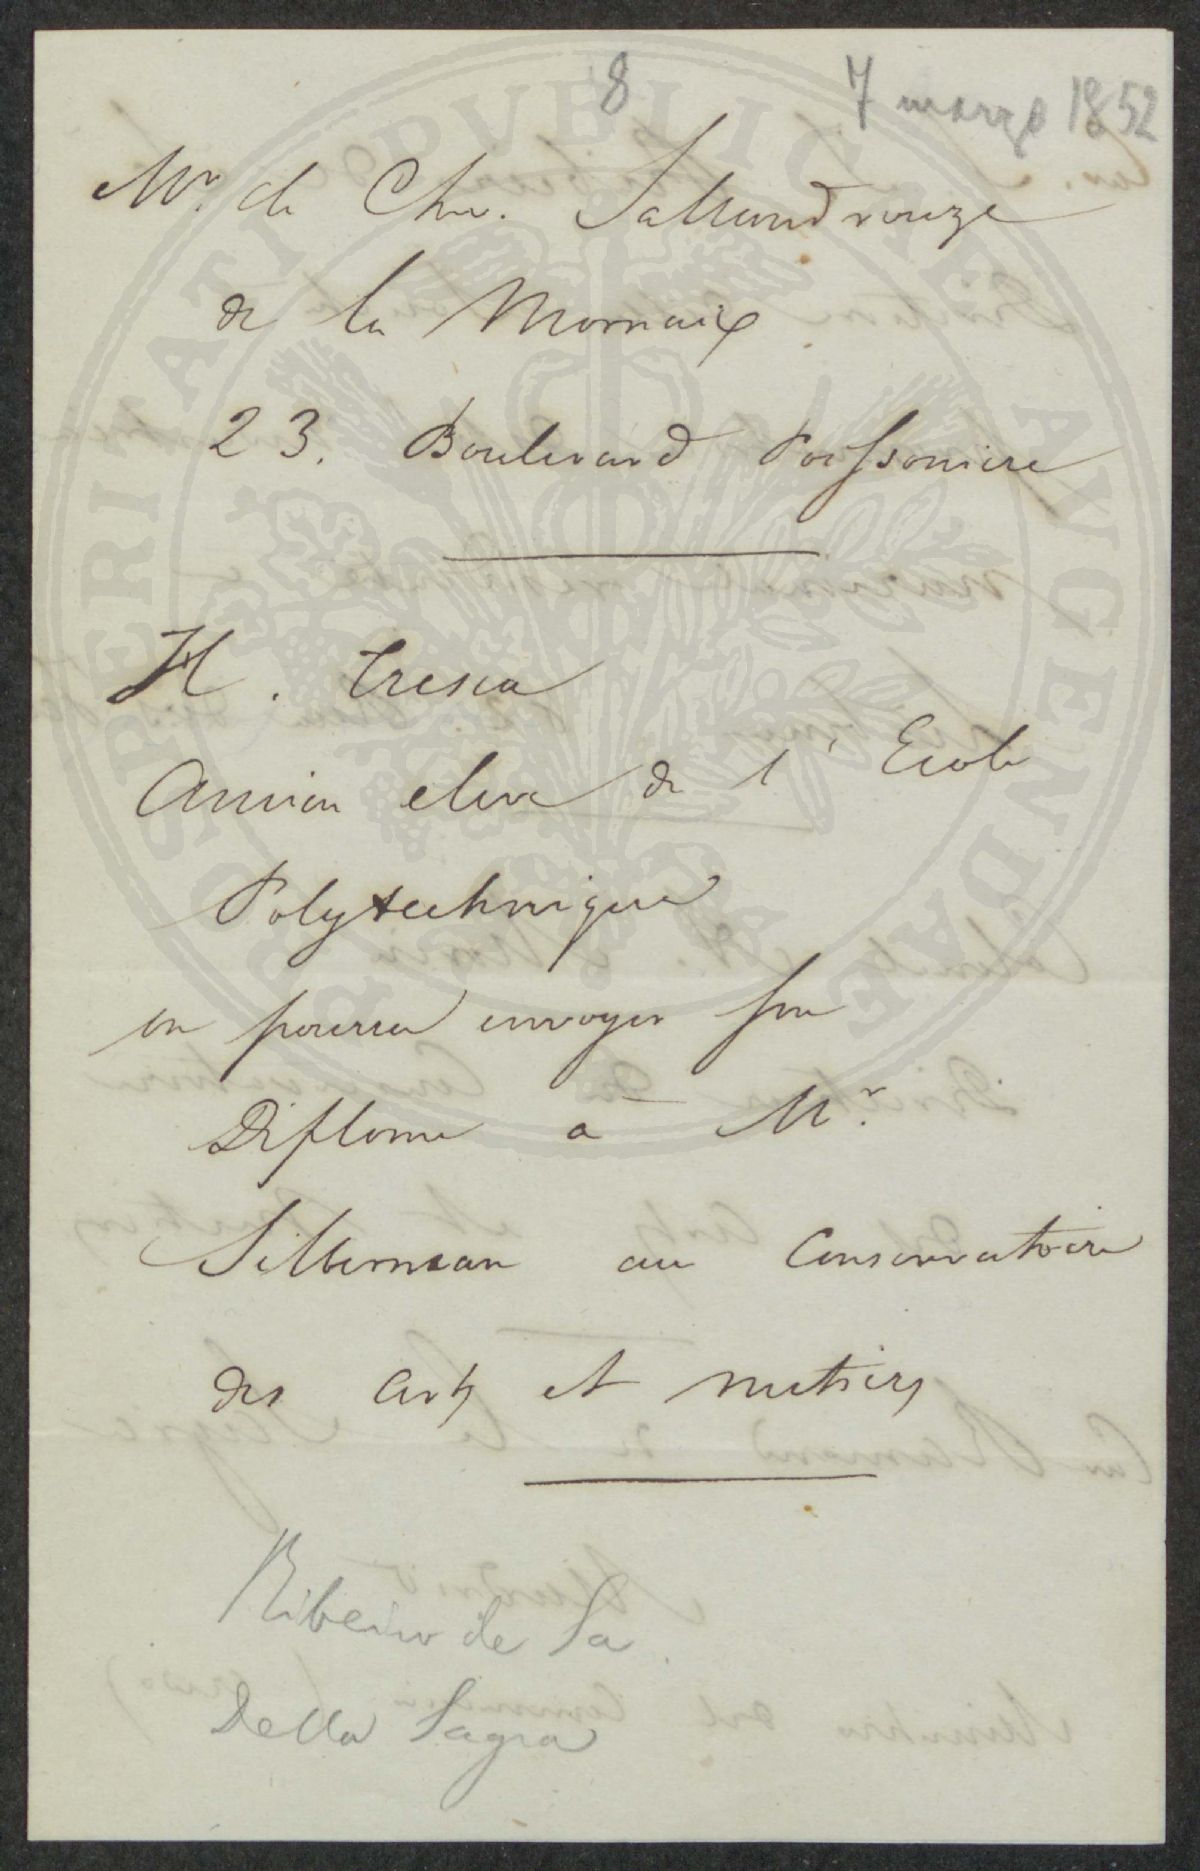 8
7 marzo 1852
Mr. de Chr. Sallandrouze
de la Mornaix
23. Boulevard Poissoniere
H. Tresca
Ancien eleve de l'Ecole
Polytechnique
on pourra envoyer son
Diplome a Mr.
Silberman au Conservatoire
des Arts et metiers
Ribeiro de Sa
Della Sagra
PROSPERITATI PVBLICAE AVGENDAE